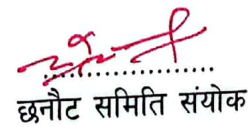 ....................
छनौट समिति संयोक